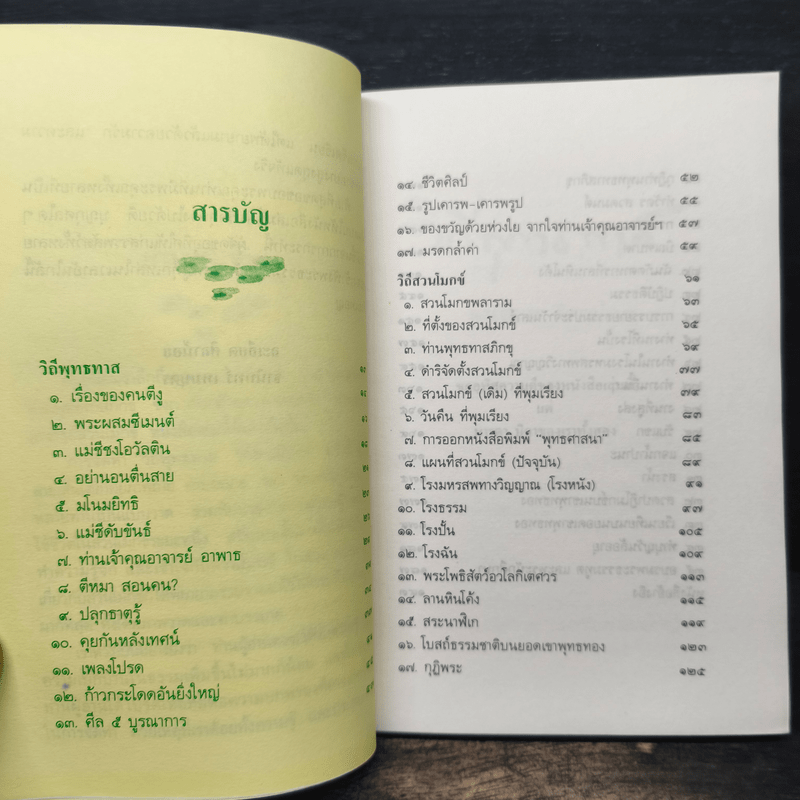 สารบัญ
วิถีพุทธทาส
๑. เรื่องของคนตีงู
๒. พระผสมซีเมนต์
๓. แม่ชีชงโอวัลติน
๔. อย่านอนตื่นสาย
๕. มโนมยิทธิ
๖. แม่ชีดับขันธ์
๗. ท่านเจ้าคุณอาจารย์ อาพาธ
๘. ตีหมา สอนคน?
๙. ปลุกธาตุรู้
๑๐. คุยกันหลังเทศน์
๑๑. เพลงโปรด
๑๒. ก้าวกระโดดอันยิ่งใหญ่
๑๓. ศีล ๕ บูรณาการ
๑๔. ชีวิตศิลป์ ๕๒
๑๕. รูปเคารพ-เคารพรูป ๕๕
๑๖. ของขวัญด้วยห่วงใย จากใจท่านเจ้าคุณอาจารย์ฯ ๕๗
๑๗. มรดกล้ำค่า ๕๙
วิถีสวนโมกข์ ๖๑
๑. สวนโมกขพลาราม ๖๓
๒. ที่ตั้งของสวนโมกข์ ๖๕
๓. ท่านพุทธทาสภิกขุ ๖๙
๔. ดำริจัดตั้งสวนโมกข์ ๗๗
๕. สวนโมกข์ (เดิม) ที่พุมเรียง ๗๙
๖. วันคืน ที่พุมเรียง ๘๓
๗. การออกหนังสือพิมพ์ "พุทธศาสนา" ๘๕
๘. แผนที่สวนโมกข์ (ปัจจุบัน) ๘๙
๙. โรงมหรสพทางวิญญาณ (โรงหนัง) ๙๑
๑๐. โรงธรรม ๙๗
๑๑. โรงปั้น ๑๐๕
๑๒. โรงฉัน ๑๐๙
๑๓. พระโพธิสัตว์อวโลกิเตศวร ๑๑๓
๑๔. ลานหินโค้ง ๑๑๕
๑๕. สระนาฬิเก ๑๑๙
๑๖. โบสถ์ธรรมชาติบนยอดเขาพุทธทอง ๑๒๓
๑๗. กุฏิพระ ๑๒๕